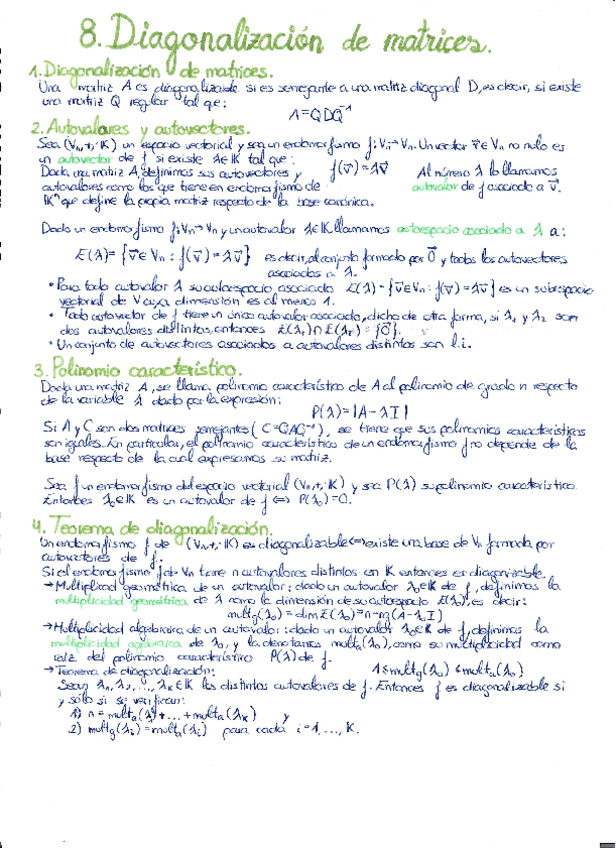 8. Diagonalización de matrices.
1. Diagonalización de matrices.
Una matriz A es diagonalizable si es semejante a una matriz diagonal D, es decir, si existe
una matriz Q regular tal que:
A=QDQ⁻¹
2. Autovalores y autovectores.
Sea (Vn,+,·K) un espacio vectorial y sea un endomorfismo f:Vn→Vn. Un vector v⃗∈Vn no nulo es
un autovector de f si existe λ∈K tal que:
f(v⃗)=λv⃗
Dada una matriz A, definimos sus autovectores y
autovalores como los que tiene en endomorfismo de
Kⁿ que define la propia matriz respecto de la base canónica.
Al número λ lo llamamos
autovalor de f asociado a v⃗.
Dado un endomorfismo f:Vn→Vn y un autovalor λ∈K llamamos autoespacio asociado a λ a:
E(λ)={v⃗∈Vn : f(v⃗)=λv⃗} es decir, al conjunto formado por 0⃗ y todos los autovectores
asociados a λ.
• Para todo autovalor λ su autoespacio asociado E(λ)={v⃗∈Vn : f(v⃗)=λv⃗} es un subespacio
vectorial de V cuya dimensión es al menos 1.
• Todo autovector de f tiene un único autovalor asociado, dicho de otra forma, si λ₁ y λ₂ son
dos autovalores distintos, entonces E(λ₁)∩E(λ₂)={0⃗}.
• Un conjunto de autovectores asociados a autovalores distintos son l.i.
3. Polinomio característico.
Dada una matriz A, se llama polinomio característico de A al polinomio de grado n respecto
de la variable λ dado por la expresión:
P(λ)=|A-λI|
Si A y C son dos matrices semejantes (C=QAQ⁻¹), se tiene que sus polinomios característicos
son iguales. En particular, el polinomio característico de un endomorfismo f no depende de la
base respecto de la cual expresamos su matriz.
Sea f un endomorfismo del espacio vectorial (Vn,+,·K) y sea P(λ) su polinomio característico.
Entonces λ₀∈K es un autovalor de f ⇔ P(λ₀)=0.
4. Teorema de diagonalización.
Un endomorfismo f de (Vn,+,·K) es diagonalizable⇔existe una base de Vn formada por
autovectores de f.
Si el endomorfismo f de Vn tiene n autovalores distintos en K entonces es diagonizable.
→Multiplicad geométrica de un autovalor: dado un autovalor λ₀∈K de f, definimos la
multiplicidad geométrica de λ como la dimensión de su autoespacio E(λ₀), es decir:
multg(λ₀)=dim E(λ₀)=n-rg(A-λ₀I)
→Multiplicidad algebraica de un autovalor: dado un autovalor λ₀∈K de f, definimos la
multiplicidad algebraica de λ₀, y la denotamos multa(λ₀), como su multiplicidad como
raíz del polinomio característico P(λ) de f.
1≤multg(λ₀)≤multa(λ₀)
→Teorema de diagonalización:
Sean λ₁,λ₂,...,λK∈K los distintos autovalores de f. Entonces f es diagonalizable si
y sólo si se verifican:
1) n=multa(λ₁)+...+multa(λK) y
2) multg(λi)=multa(λi) para cada i=1,...,K.